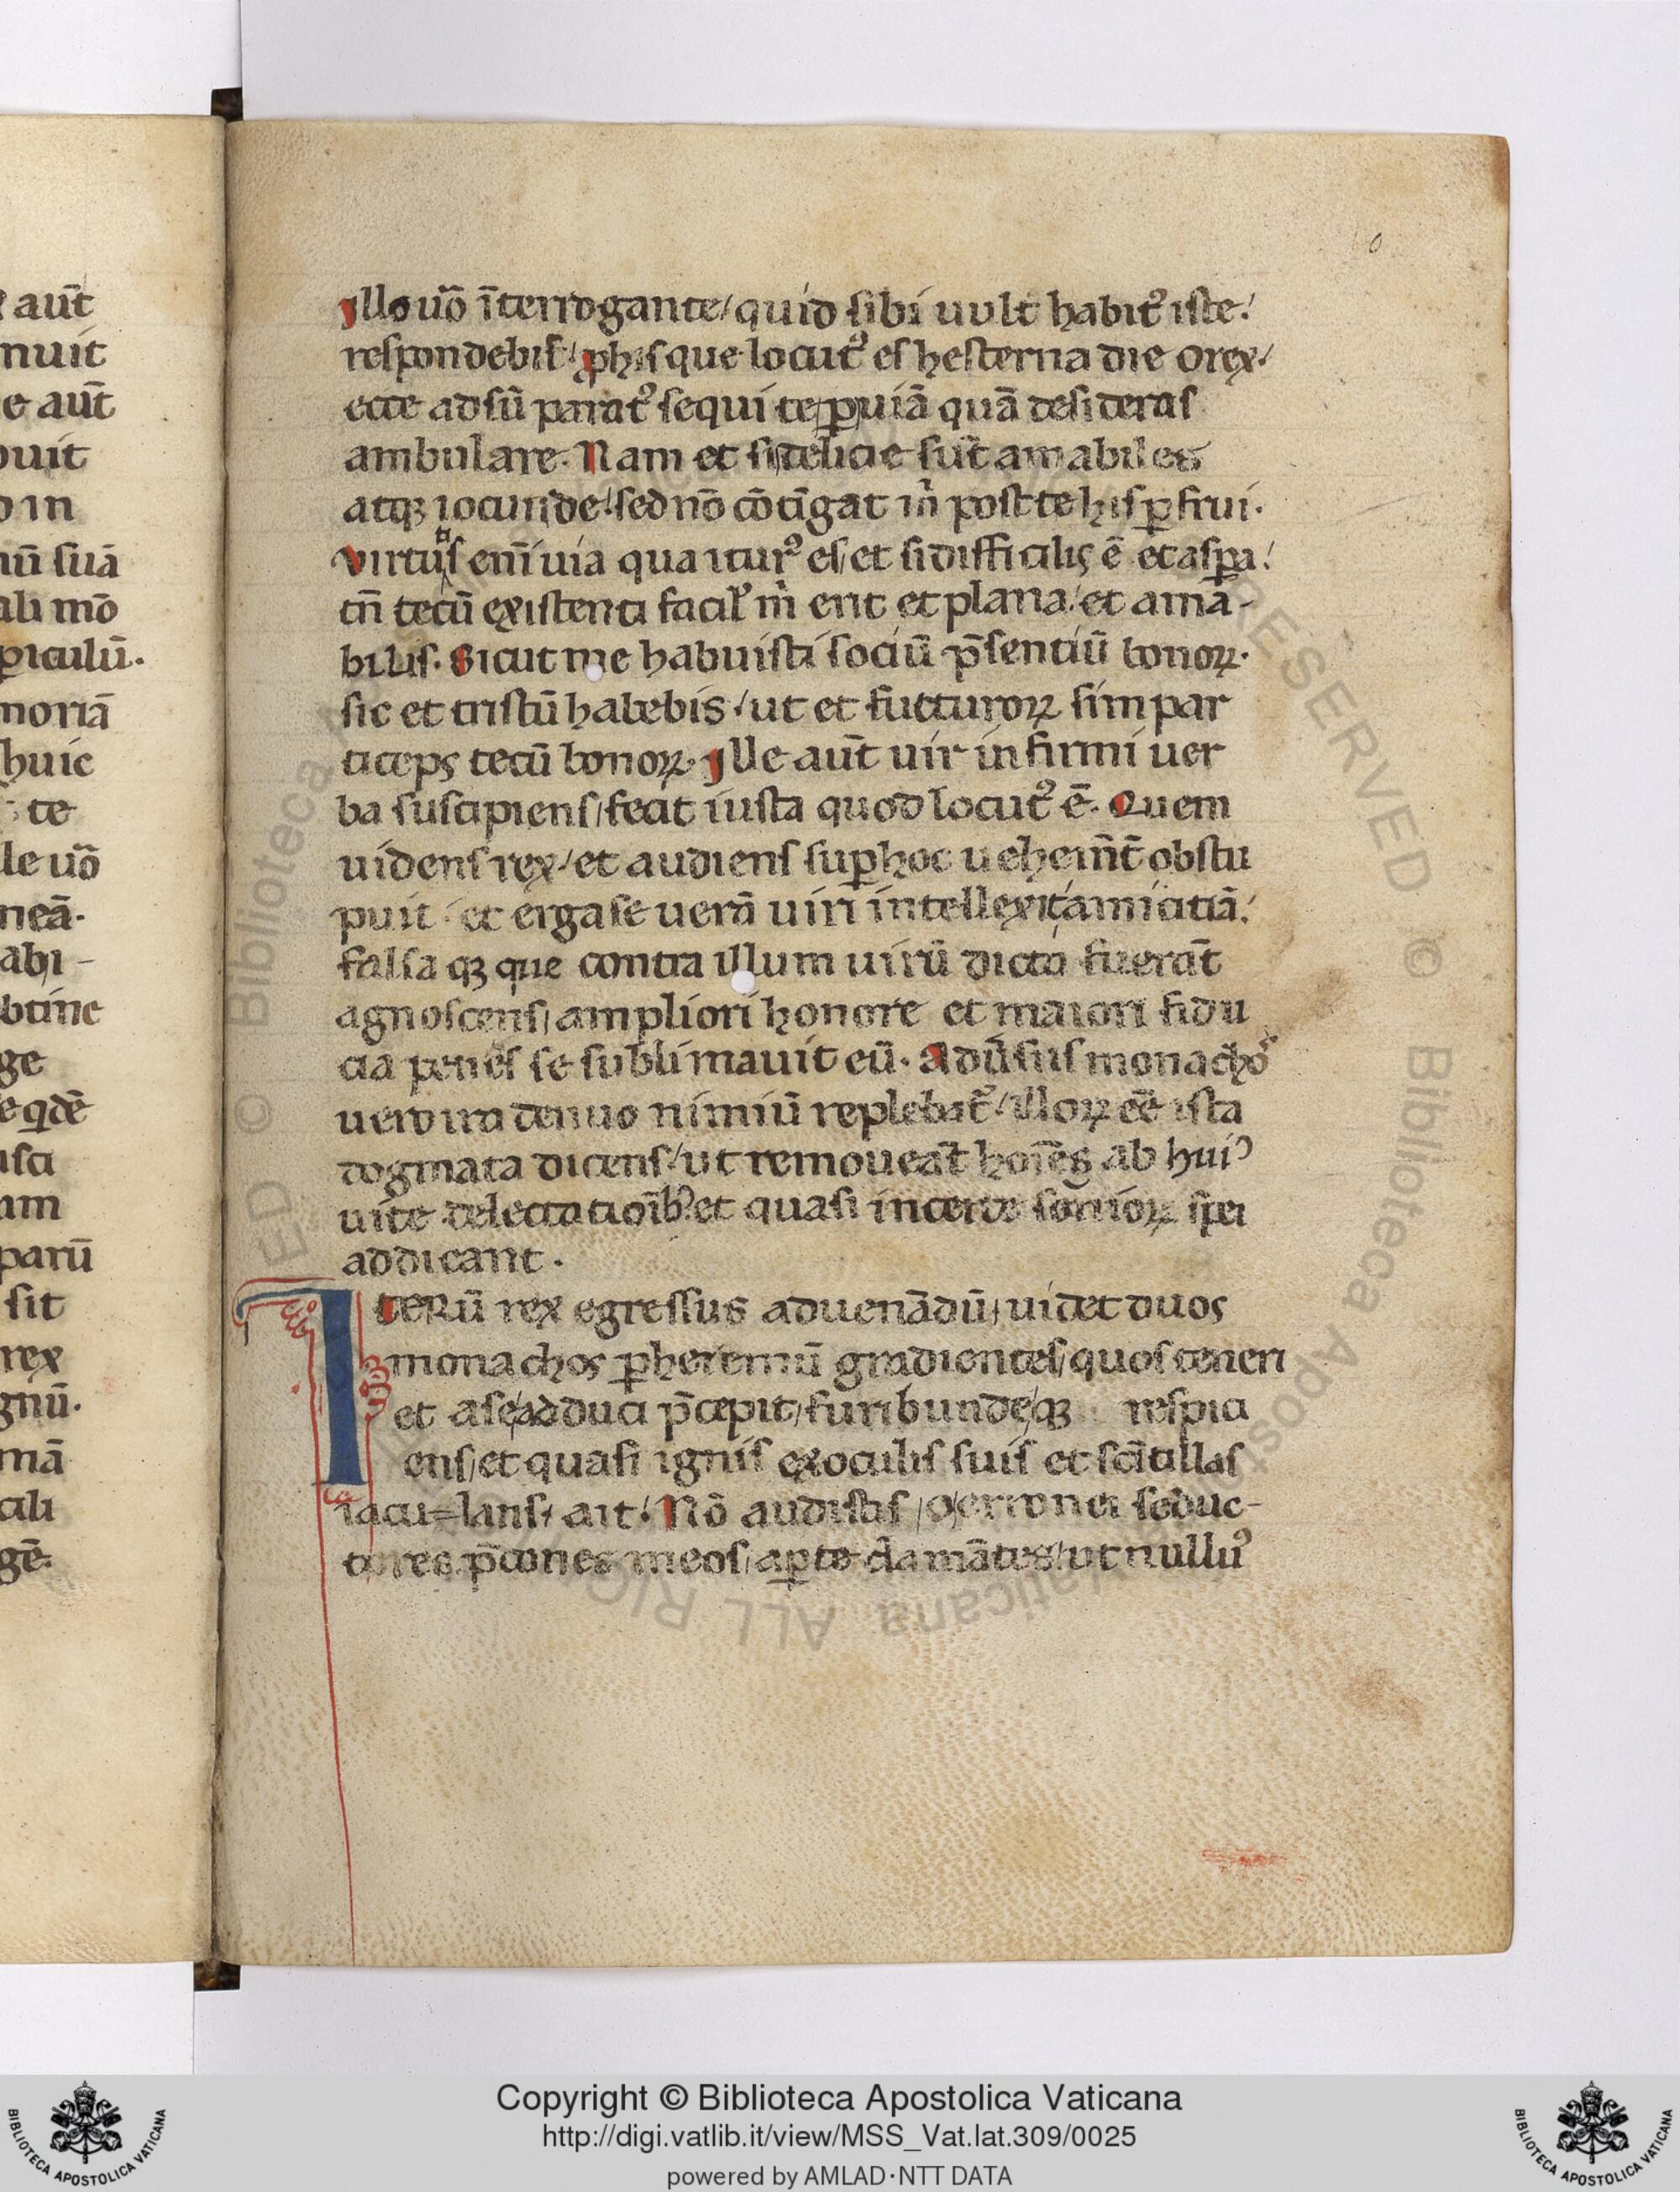 Illo uo̅ i̅terrogante / quid sibi uult habitꝰ iste /
respondebis / p̲ his que locutꝰ es hesterna die o rex /
ecce adsu̅ paratꝰ sequi te / p̲ uia̅ qua̅ desideras
ambulare. Nam et si delicie su̅t amabiles
atqꝫ iocunde / sed no̅ co̅ti̅gat m̅ post te his p̲frui.
Virtus eni̅ uia qua iturꝰ es / et si difficilis e̅ et asp̲a /
tn̅ tecu̅ existenti facil' m̅ erit et plana / et ama-
bilis. Sicut me habuisti sociu̅ p̅sentiu̅ bonoꝝ.
sic et tristu̅ habebis / ut et futturoꝝ sim par
ticeps tecu̅ bonoꝝ. Ille aut̅ uir infirmi uer
ba suscipiens / fecit iusta quod locutꝰ e̅. Quem
uidens rex / et audiens sup̲ hoc uehem̅t̅ obstu
puit / et erga se uera̅ uiri intellexit amicitia̅ /
falsaqꝫ que contra illum uiru̅ dicta fuera̅t
agnoscens / ampliori honore et maiori fidu
cia penes se sublimauit eu̅. Adu̅sus monacho̅
uero ira denuo nimiu̅ replebat̉ / illoꝝ ee̅ ista
dogmata dicens / ut remouea̅t hoi̅es ab huiꝰ
uite delectatioi̅bꝫ et quasi incerte so̅nioꝝ spei
addicant.
Iteru̅ rex egressus ad uena̅du̅ / uidet duos
monachos p̲ heremu̅ gradientes / quos teneri
et a se adduci p̅cepit / furibundeqꝫ respici
ens / et quasi ignis ex oculis suis et sci̅tillas
iacu=lans / ait / No̅ audistis / o erronei seduc-
tores p̅cones meos / ap̲te clama̅tes / ut nullꝰ
Copyright © Biblioteca Apostolica Vaticana
http://digi.vatlib.it/view/MSS_Vat.lat.309/0025
powered by AMLAD·NTT DATA